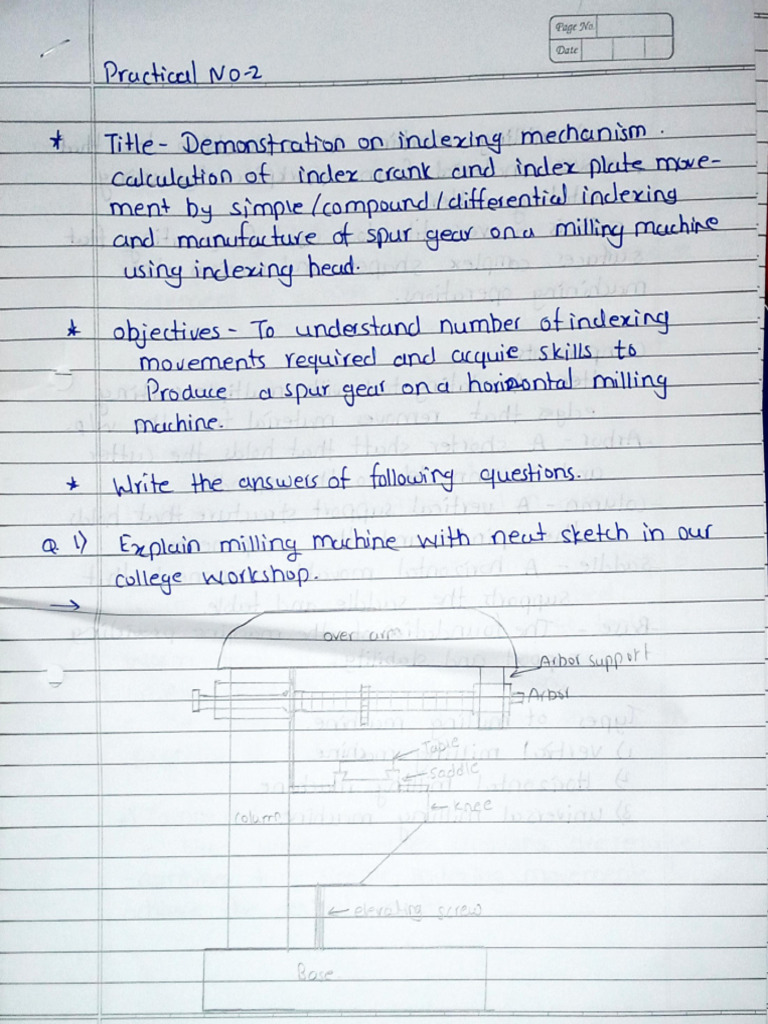 Page No.
Date
Practical No-2
* Title - Demonstration on indexing mechanism.
calculation of index crank and index plate move-
ment by simple/compound/differential indexing
and manufacture of spur gear on a milling machine
using indexing head.
* objectives - To understand number of indexing
movements required and acquie skills to
Produce a spur gear on a horizontal milling
machine.
* Write the answers of following questions.
Q. 1) Explain milling machine with neat sketch in our
college workshop.
→
over arm
Arbor support
Arbor
Table
saddle
knee
column
elevating screw
Base